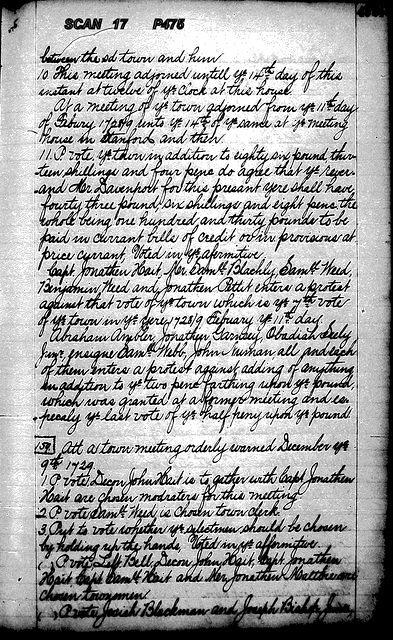 SCAN 17 P475
between the sd town and him
10 This meeting adjorned untill ye 14th day of this
instant at twelve of ye Clock at this house
At a meeting of ye town adjorned from ye 11th day
of Febury 1728/9 unto ye 14th of ye same at ye meeting
house in Stanford and then
11. P vote, ye town in addition to eighty six pound thir-
teen shillings and four pens do agree that ye rever-
and Mr Davenport for this present yere shall have
fourty three pound, six shillings and eight pens the
whole being one hundred and thirty pounds to be
paid in currant bills of credit or in provisions at
price currant, Voted in ye afermitive.
Capt Jonathen Hait, Mr. Samll Blachly, Samll Weed,
Benjamin Weed and Jonathen Pettit enters a protest
against that vote of ye town which is ye 7th vote
of ye town in ye yere, 1728/9 Febuary ye 11th day
Abraham Ambler, Jonathen Garnsey, Obadiah Seely
Junr, ensigne Samll Webb, John Truman, all and each
of them enters a protest against adding of anything
in addition to ye two pens farthing upon ye pound,
which was granted at a former meeting and es-
pecaly ye last vote of ye half peny upon ye pound
Att a town meeting orderly warned December ye
9th 1729.
1 P vote, Decon John Hait is to gather with Capt Jonathen
Hait are chosen modraters for this meeting
2 P vote Samll Weed is chosen town clerk
3. Put to vote whether ye selectmen should be chosen
by holding up the hands, Voted in ye affirmitive
P vote, Left Bell, Decon John Hait, Capt Jonathen
Hait Capt Samll Hait and Mr. Jonathen Maltbie are
chosen townsmen
P vote, Josiah Blackman and Joseph Bishop, Junr,